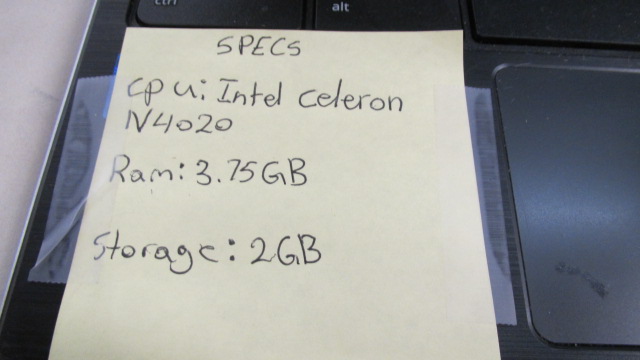 ctrl
alt
SPECS
cpu: Intel celeron
N4020
Ram: 3.75GB
Storage: 2GB